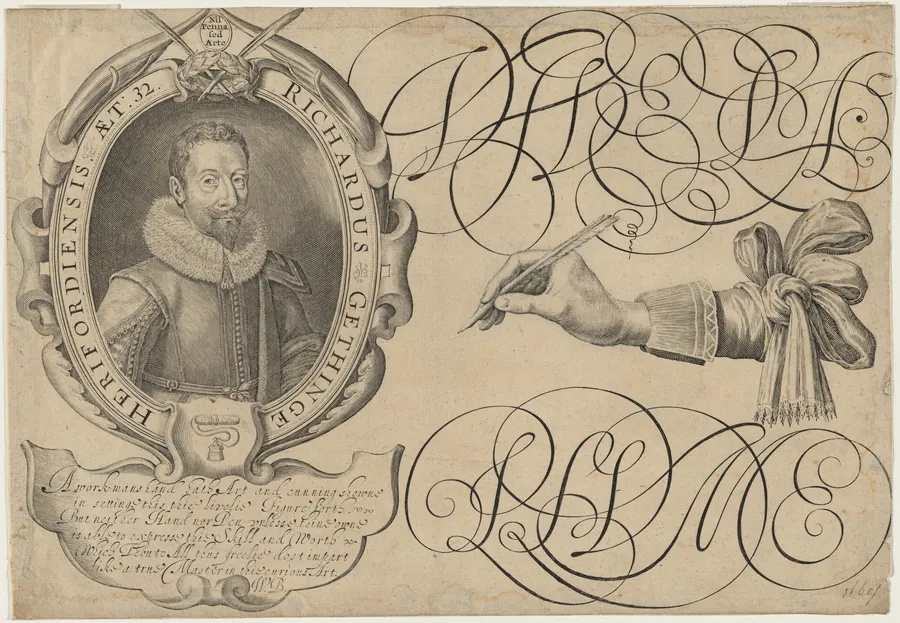 Nil
Penna
sed
Arte
HERIFORDIENSIS ÆT. 32. RICHARDUS GETHINGE
A workmans hand hath Art and cunning showne
in settinge this thie livelie Figure forth
But neither Hand nor Pen unlesse thine owne
is able to expresse thie Skill and Worth
Which Thou to All thus freelie dost impart
like a true Master in thie curious Art.
W.B.